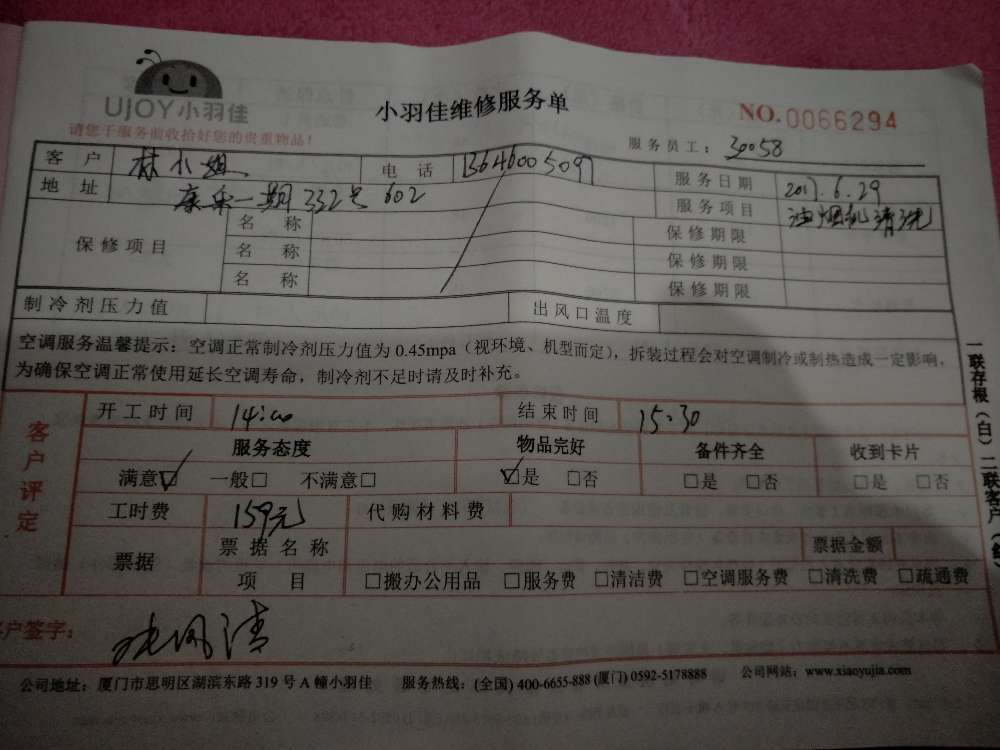 UJOY小羽佳
小羽佳维修服务单
NO.0066294
请您于服务前收拾好您的贵重物品!
服务员工: 30058
客户 林小姐 电话 13646005097 服务日期 2017.6.29
地址 康乐一期332号602 服务项目 油烟机清洗
保修项目 名称 保修期限
名称 保修期限
名称 保修期限
制冷剂压力值 出风口温度
空调服务温馨提示:空调正常制冷剂压力值为 0.45mpa(视环境、机型而定),拆装过程会对空调制冷或制热造成一定影响,
为确保空调正常使用延长空调寿命,制冷剂不足时请及时补充。
客户评定
开工时间 14:00 结束时间 15:30
服务态度 物品完好 备件齐全 收到卡片
满意☑ 一般□ 不满意□ ☑是 □否 □是 □否 □是 □否
工时费 159元 代购材料费
票据 票据名称 票据金额
项目 □搬办公用品 □服务费 □清洁费 □空调服务费 □清洗费 □疏通费
户签字:
公司地址:厦门市思明区湖滨东路 319 号 A 幢小羽佳 服务热线:(全国) 400-6655-888 (厦门) 0592-5178888 公司网站:www.xiaoyujia.com
一联存根(白)二联客户